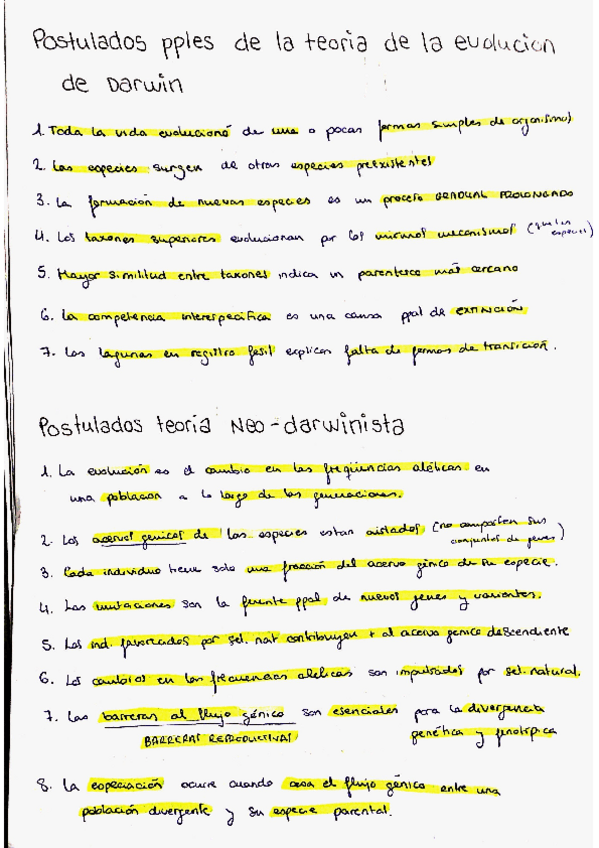 Postulados pples de la teoría de la evolucion
de Darwin
1. Toda la vida evolucionó de una o pocas formas simples de organismos
2. Las especies surgen de otras especies preexistentes
3. La formación de nuevas especies es un proceso GRADUAL PROLONGADO
4. Los taxones superiores evolucionan por los mismos mecanismos (que las
especies)
5. Mayor similitud entre taxones indica un parentesco más cercano
6. La competencia interespecifica es una causa ppal de EXTINCIÓN
7. Las lagunas en registro fósil explican falta de formas de transición.
Postulados teoría Neo-darwinista
1. La evolución es el cambio en las freqüencias alélicas en
una población a lo largo de las generaciones.
2. Los acervos genicos de las especies estan aislados (no comparten sus
conjuntos de genes)
3. Cada individuo tiene solo una fracción del acervo génico de su especie.
4. Las mutaciones son la fuente ppal de nuevos genes y variantes.
5. Los ind. favorecidos por sel. nat contribuyen + al acervo genico descendiente
6. Los cambios en las frecuencias alélicas son impulsados por sel. natural.
7. Las barreras al flujo génico son esenciales para la divergencia
BARRERAS REPRODUCTIVAS genética y fenotípica
8. La especiación ocurre cuando cesa el flujo génico entre una
población divergente y su especie parental.